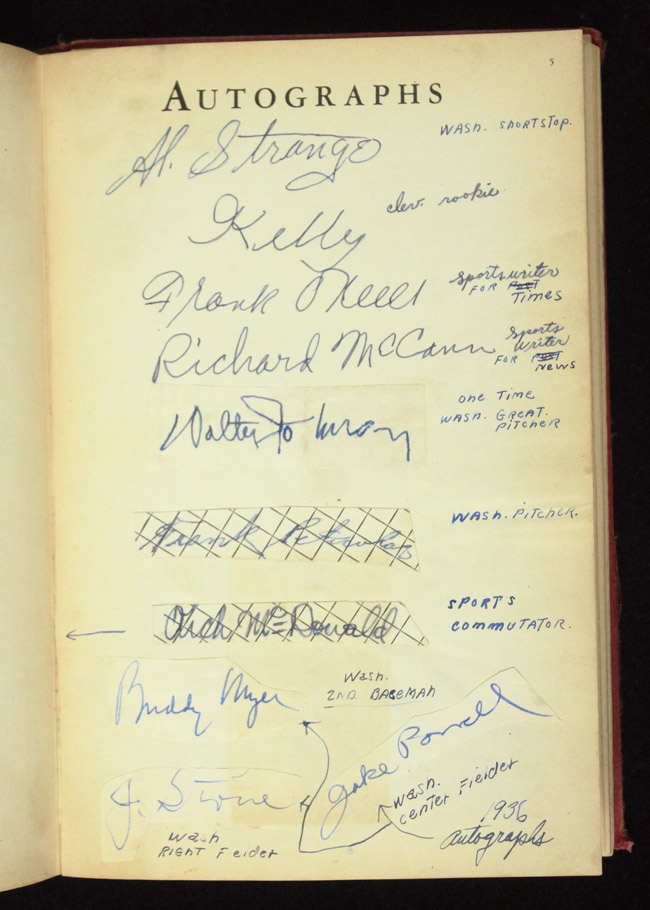 5
AUTOGRAPHS
Al. Strange
WASH. SHORTSTOP.
Kelly
clev. rookie
Frank O'Neill
sports writer
FOR POST
TIMES
Richard McCann
sports
writer
FOR POST
NEWS
Walter Johnson
ONE TIME
WASH. GREAT.
PITCHER
Frank
WASH. PITCHER.
Arch McDonald
SPORTS
COMMUTATOR.
Buddy Myer
WASH.
2ND. BASEMAN
Jake Powell
WASH.
CENTER FIELDER
J. Stone
WASH
RIGHT FIELDER
1936
autographs